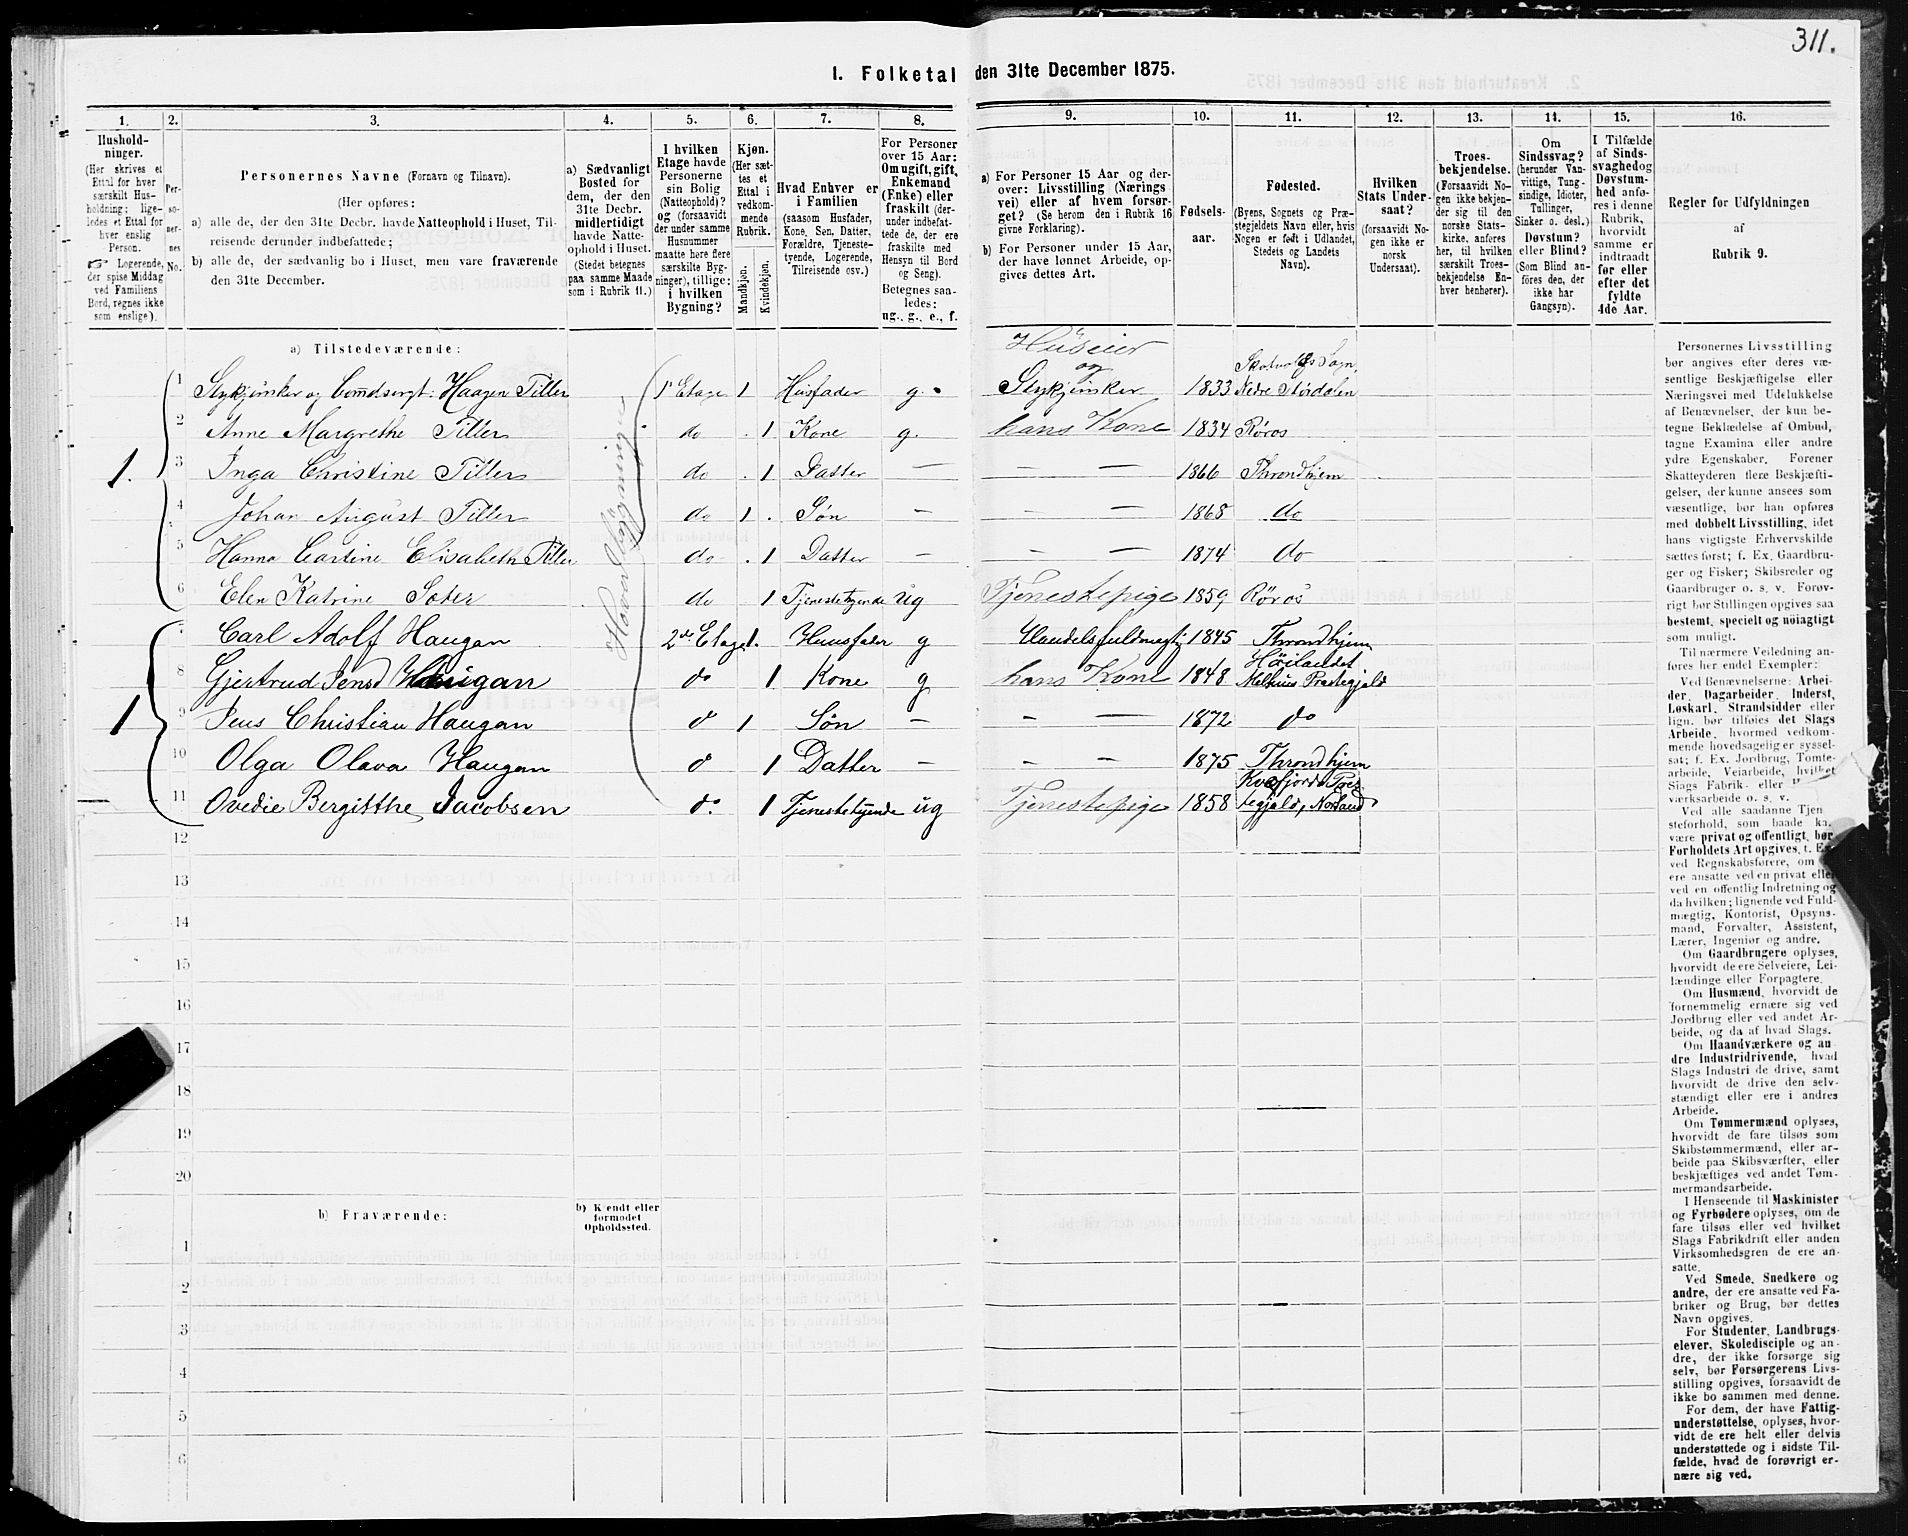 311.
1. Folketal den 31te December 1875.
1. 2. 3. 4. 5. 6. 7. 8. 9. 10. 11. 12. 13. 14. 15. 16.
Hushold-
ninger.
(Her skrives et
Ettal for hver
særskilt Hus-
holdning; lige-
ledes et Ettal for
hver enslig
Person.
☞ Logerende,
der spise Middag
ved Familiens
Bord, regnes ikke
som enslige).
Per-
so-
ner-
nes
No.
Personernes Navne (Fornavn og Tilnavn).
(Her opføres:
a) alle de, der den 31te Decbr. havde Natteophold i Huset, Til-
reisende derunder indbefattede;
b) alle de, der sædvanlig bo i Huset, men vare fraværende
den 31te December.
a) Sædvanligt
Bosted for
dem, der den
31te Decbr.
midlertidigt
havde Natte-
ophold i Huset.
(Stedet betegnes
paa samme Maade
som i Rubrik 11.)
I hvilken
Etage havde
Personerne
sin Bolig
(Natteophold)?
og (forsaavidt
der under samme
Husnummer
maatte høre flere
særskilte Byg-
ninger), tillige:
i hvilken
Bygning?
Kjøn.
(Her sæt-
tes et
Ettal i
vedkom-
mende
Rubrik.
Mandkjøn.
Kvindekjøn.
Hvad Enhver er
i Familien
(saasom Husfader,
Kone, Søn, Datter,
Forældre, Tjeneste-
tyende, Logerende,
Tilreisende osv.)
For Personer
over 15 Aar:
Om ugift, gift,
Enkemand
(Enke) eller
fraskilt (der-
under indbefat-
tede de, der ere
fraskilte med
Hensyn til Bord
og Seng).
Betegnes saa-
ledes:
ug., g., e., f.
a) For Personer 15 Aar og der-
over: Livsstilling (Nærings
vei) eller af hvem forsør-
get? (Se herom den i Rubrik 16
givne Forklaring).
b) For Personer under 15 Aar,
der have lønnet Arbeide, op-
gives dettes Art.
Fødsels-
aar.
Fødested.
(Byens, Sognets og Præ-
stegjeldets Navn eller, hvis
Nogen er født i Udlandet,
Stedets og Landets
Navn).
Hvilken
Stats Under-
saat?
(forsaavidt No-
gen ikke er
norsk
Undersaat).
Troes-
bekjendelse.
(Forsaavidt No-
gen ikke bekjen-
der sig til den
norske Stats-
kirke, anføres
her, til hvilken
særskilt Troes-
bekjendelse En-
hver henhører).
Om
Sindssvag?
(herunder Van-
vittige, Tung-
sindige, Idioter,
Tullinger,
Sinker o. desl.)
Døvstum?
eller Blind?
(Som Blind an-
føres den, der
ikke har
Gangsyn).
I Tilfælde
af Sinds-
svaghed og
Døvstum-
hed anfø-
res i denne
Rubrik,
hvorvidt
samme er
indtraadt
før eller
efter det
fyldte
4de Aar.
Regler for Udfyldningen
af
Rubrik 9.
a) Tilstedeværende:
Hovedbygningen
1. 1 Stykjunker og Comdsergt: Haagen Tiller 1ste Etage 1 Husfader g. Huseier og Stykjunker 1833 Skatvals Sogn, Nedre Stördalen
2 Anne Margrethe Tiller do 1 Kone g. hans Kone 1834 Röros
3 Inga Christine Tiller do 1 Datter — — — 1866 Throndhjem
4 Johan August Tiller do 1 Søn — — — 1868 do
5 Hanna Cartine Elisabeth Tiller do 1 Datter — — — 1874 do
6 Elen Katrine Soter do 1 Tjenestetyende ug Tjenestepige 1859 Röros
1 7 Carl Adolf Haugan 2de Etage 1. Huusfader g Handelsfuldmegtig 1845 Throndhjem
8 Gjertrud Jensd Haugan do 1 Kone g hans Kone 1848 Höilandet Melhuus Prestegjeld
9 Jens Christian Haugan d 1 Sön — — — 1872 do
10 Olga Olava Haugan d 1 Datter — — — 1875 Throndhjem
11 Ovedie Bergitthe Jacobsen do 1 Tjenestetyende ug Tjenestepige 1858 Kvæfjords Præstegjeld, Norland
12
13
14
15
16
17
18
19
20
b) Fraværende:
b) Kjendt eller
formodet
Opholdssted.
1
2
3
4
5
6
Personernes Livsstilling
bør angives efter deres væ-
sentlige Beskjæftigelse eller
Næringsvei med Udelukkelse
af Benævnelser, der kun be-
tegne Beklædelse af Ombud,
tagne Examina eller andre
ydre Egenskaber. Forener
Skatteyderen flere Beskjæfti-
gelser, der kunne ansees som
væsentlige, bør han opføres
med dobbelt Livsstilling, idet
hans vigtigste Erhvervskilde
sættes først; f. Ex. Gaardbru-
ger og Fisker; Skibsreder og
Gaardbruger o. s. v. Forøv-
rigt bør Stillingen opgives saa
bestemt, specielt og nøiagtigt
som muligt.
Til nærmere Veiledning an-
føres her endel Exempler:
Ved Benævnelserne: Arbei-
der, Dagarbeider, Inderst,
Løskarl, Strandsidder eller
lign. bør tilføies det Slags
Arbeide, hvormed vedkom-
mende hovedsagelig er syssel-
sat; f. Ex. Jordbrug, Tomte-
arbeide, Veiarbeide, hvilket
Slags Fabrik- eller
værksarbeide o. s. v.
Ved alle saadanne Tjen
steforhold, som baade ka
være privat og offentligt, bør
Forholdets Art opgives, t. Ex
ved Regnskabsførere, om
ere ansatte ved en privat elle
ved en offentlig Indretning og
da hvilken; lignende ved Fuld-
mægtig, Kontorist, Opsyns-
mand, Forvalter, Assistent,
Lærer, Ingeniør og andre.
Om Gaardbrugere oplyses,
hvorvidt de ere Selveiere, Lei-
lændinge eller Forpagtere.
Om Husmænd, hvorvidt de
fornemmelig ernære sig ved
Jordbrug eller ved andet Ar-
beide, og da af hvad Slags.
Om Haandværkere og an
dre Industridrivende, hvad
Slags Industri de drive, samt
hvorvidt de drive den selv-
stændigt eller ere i andres
Arbeide.
Om Tømmermænd oplyses,
hvorvidt de fare tilsøs som
Skibstømmermænd, eller ar-
beide paa Skibsværfter, eller
beskjæftiges ved andet Tøm-
mermandsarbeide.
I Henseende til Maskinister
og Fyrbødere oplyses, om de
fare tilsøs eller ved hvilket
Slags Fabrikdrift eller anden
Virksomhedsgren de ere an-
satte.
Ved Smede, Snedkere og
andre, der ere ansatte ved Fa-
briker og Brug, bør dettes
Navn opgives.
For Studenter, Landbrugs-
elever, Skoledisciple og an-
dre, der ikke forsørge sig
selv, bør Forsørgerens Livs-
stilling opgives, forsaavidt de
ikke bo sammen med denne.
For dem, der have Fattig-
understøttelse, oplyses, hvor-
vidt de ere helt eller delvis
understøttede og i sidste Til-
fælde, hvad de forøvrigt er-
nære sig ved.